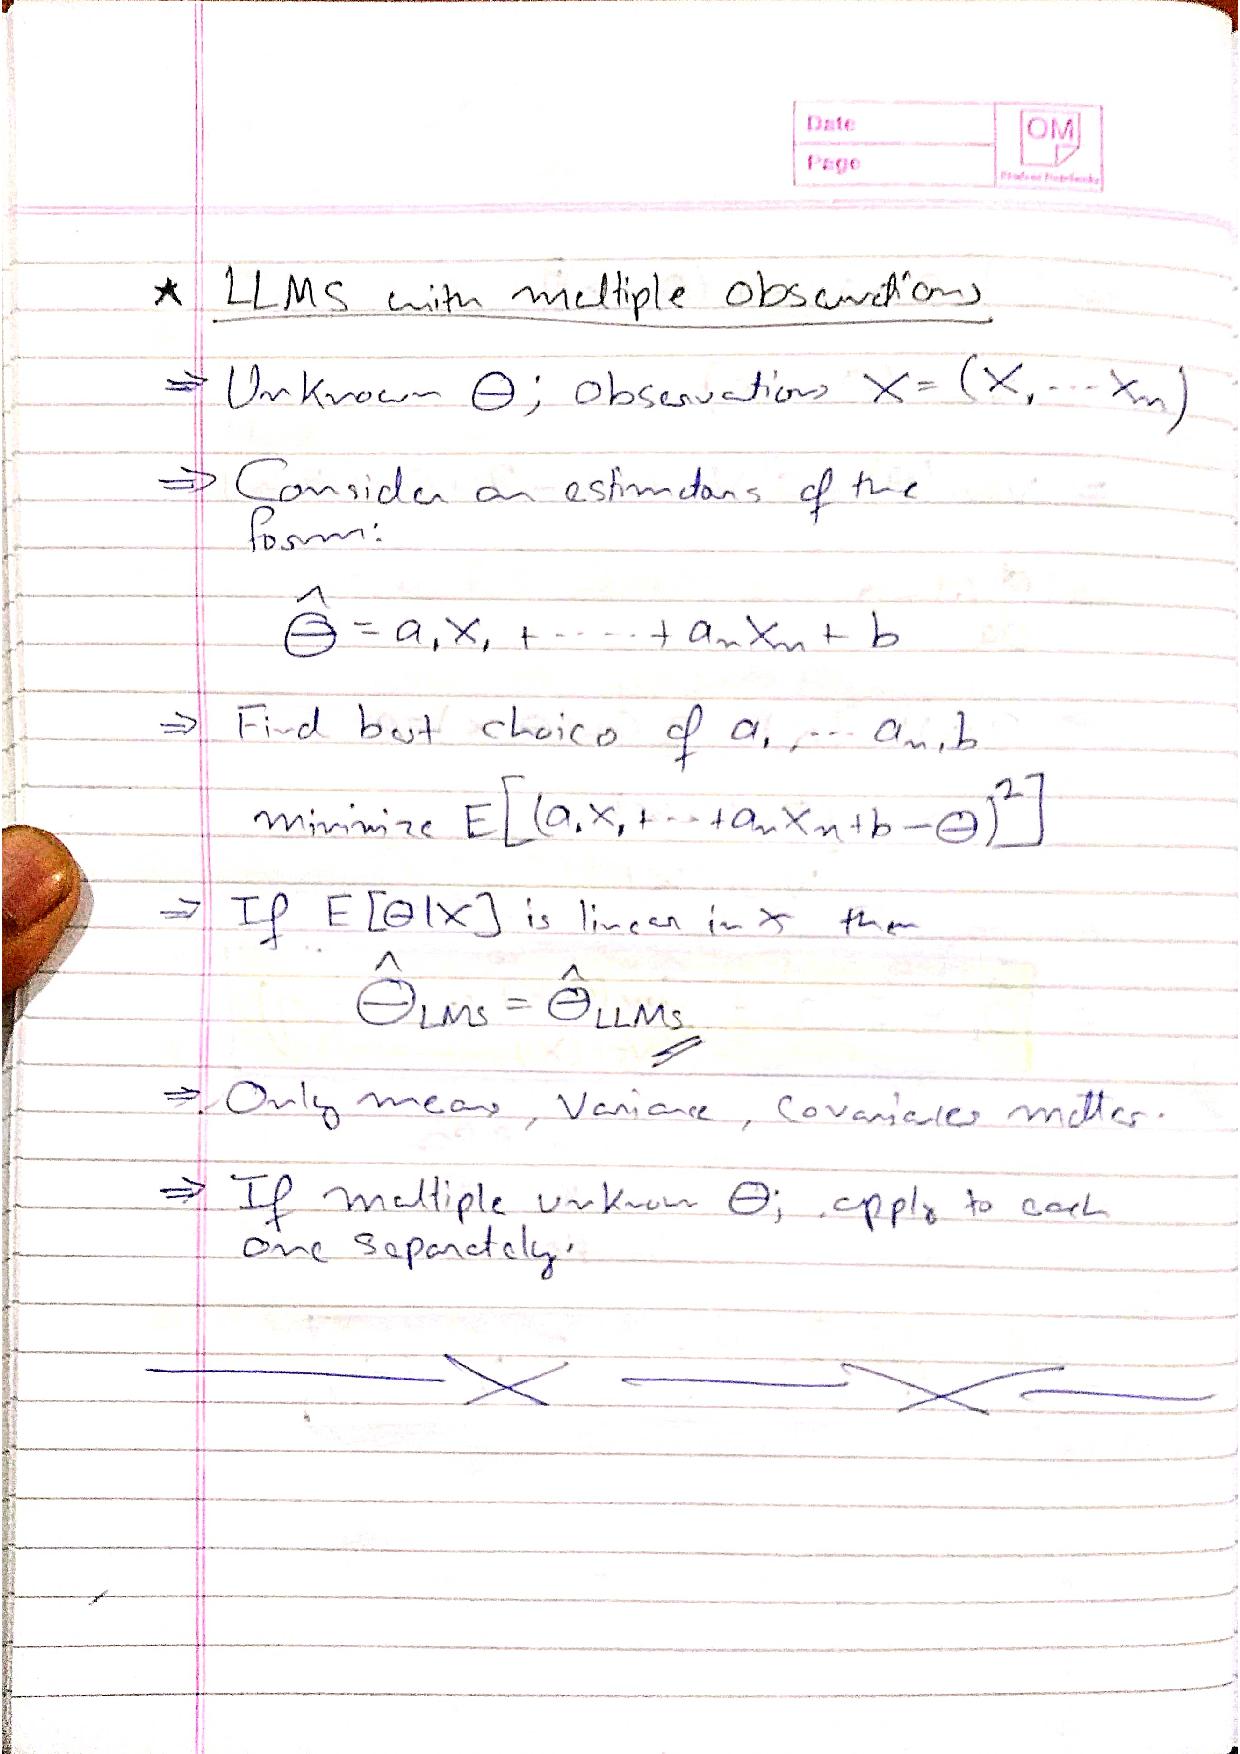 Date
Page
OM
★ LLMS with multiple observations
⇒ Unknown Θ; observations X = (X₁ ... Xₙ)
⇒ Consider an estimators of the
form:
Θ̂ = a₁X₁ + ..... + aₙXₙ + b
⇒ Find best choice of a₁, ... aₙ, b
minimize E[(a₁X₁ + ... + aₙXₙ + b − Θ)²]
⇒ If E[Θ|X] is linear in x then
Θ̂LMS = Θ̂LLMS
⇒ Only means, Variance, Covariances matter.
⇒ If multiple unknown Θ; apply to each
one separately.